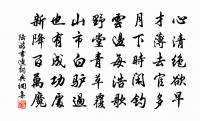 心清絕欲早
才薄去官多
月下時閑釣
雲邊每浩歌
野堂青莓覆
山市白驢過
也有成功處
新降百萬魔
陸游書適詞典網集